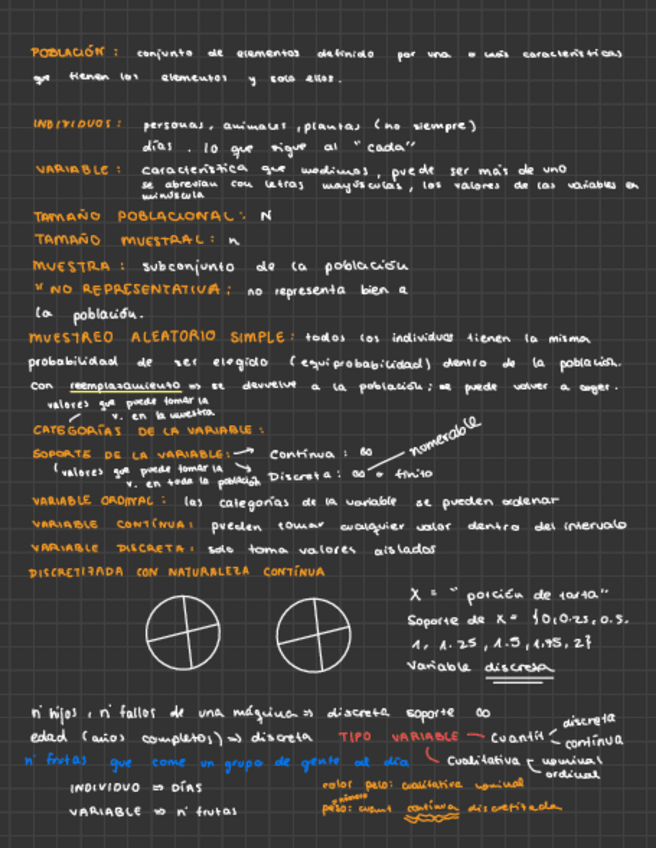 POBLACIÓN : conjunto de elementos definido por una o más características
que tienen los elementos y solo ellos.
INDIVIDUOS : personas, animales, plantas (no siempre)
días . lo que sigue al "cada"
VARIABLE : característica que medimos, puede ser más de uno
se abrevian con letras mayúsculas, los valores de las variables en
minúscula
TAMAÑO POBLACIONAL : N
TAMAÑO MUESTRAL : n
MUESTRA : subconjunto de la población
* NO REPRESENTATIVA : no representa bien a
la población.
MUESTREO ALEATORIO SIMPLE : todos los individuos tienen la misma
probabilidad de ser elegido (equiprobabilidad) dentro de la población.
Con reemplazamiento => se devuelve a la población ; se puede volver a coger.
valores que puede tomar la
v. en la muestra
CATEGORÍAS DE LA VARIABLE :
SOPORTE DE LA VARIABLE: → Continua : ∞
numerable
(valores que puede tomar la
v. en toda la población
→ Discreta : ∞ o finito
VARIABLE ORDINAL : las categorías de la variable se pueden ordenar
VARIABLE CONTÍNUA : pueden tomar cualquier valor dentro del intervalo
VARIABLE DISCRETA : solo toma valores aislados
DISCRETIZADA CON NATURALEZA CONTÍNUA
X = " porción de tarta"
Soporte de X = {0,0.25, 0.5.
1, 1.25, 1.5, 1.75, 2}
Variable discreta
nº hijos , nº fallos de una máquina => discreta soporte ∞
edad (años completos) => discreta TIPO VARIABLE — Cuantit
discreta
contínua
nº frutas que come un grupo de gente al día
Cualitativa
nominal
ordinal
INDIVIDUO => DÍAS
VARIABLE => nº frutas
color pelo: cualitativa nominal
peso: cuant contínua discretizada